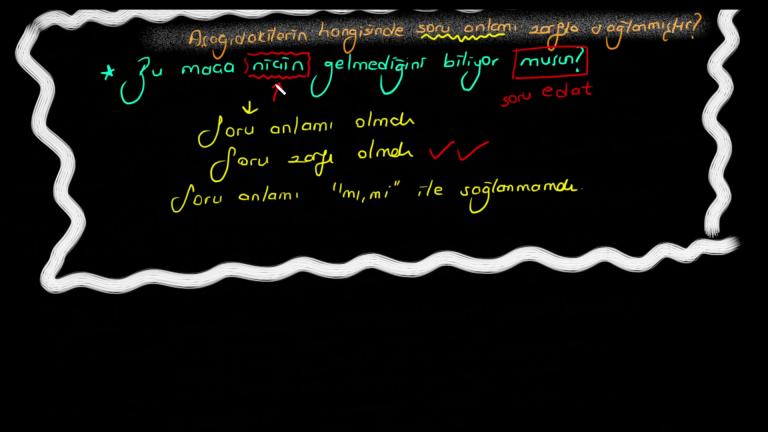 Aşağıdakilerin hangisinde soru anlamı zarfla sağlanmıştır?
* Bu maça niçin gelmediğini biliyor musun?
soru edat
Soru anlamı olmalı
Soru zarfı olmalı
Soru anlamı "mı, mi" ile sağlanmamalı.